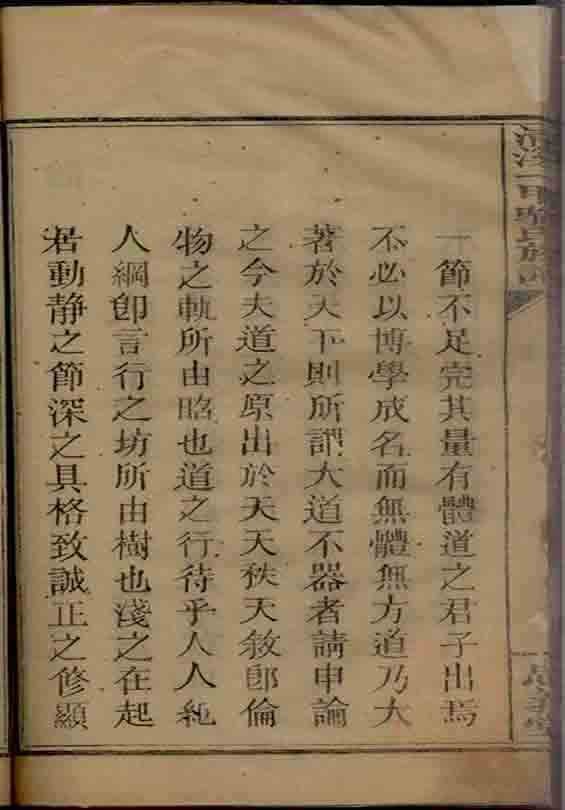 一節不足完其量有體道之君子出焉
不必以博學成名而無體無方道乃大
著於天下則所謂大道不器者請申論
之今夫道之原出於天天秩天敘卽倫
物之軌所由昭也道之行待乎人人紀
人綱卽言行之坊所由樹也淺之在起
居動靜之節深之具格致誠正之修顯